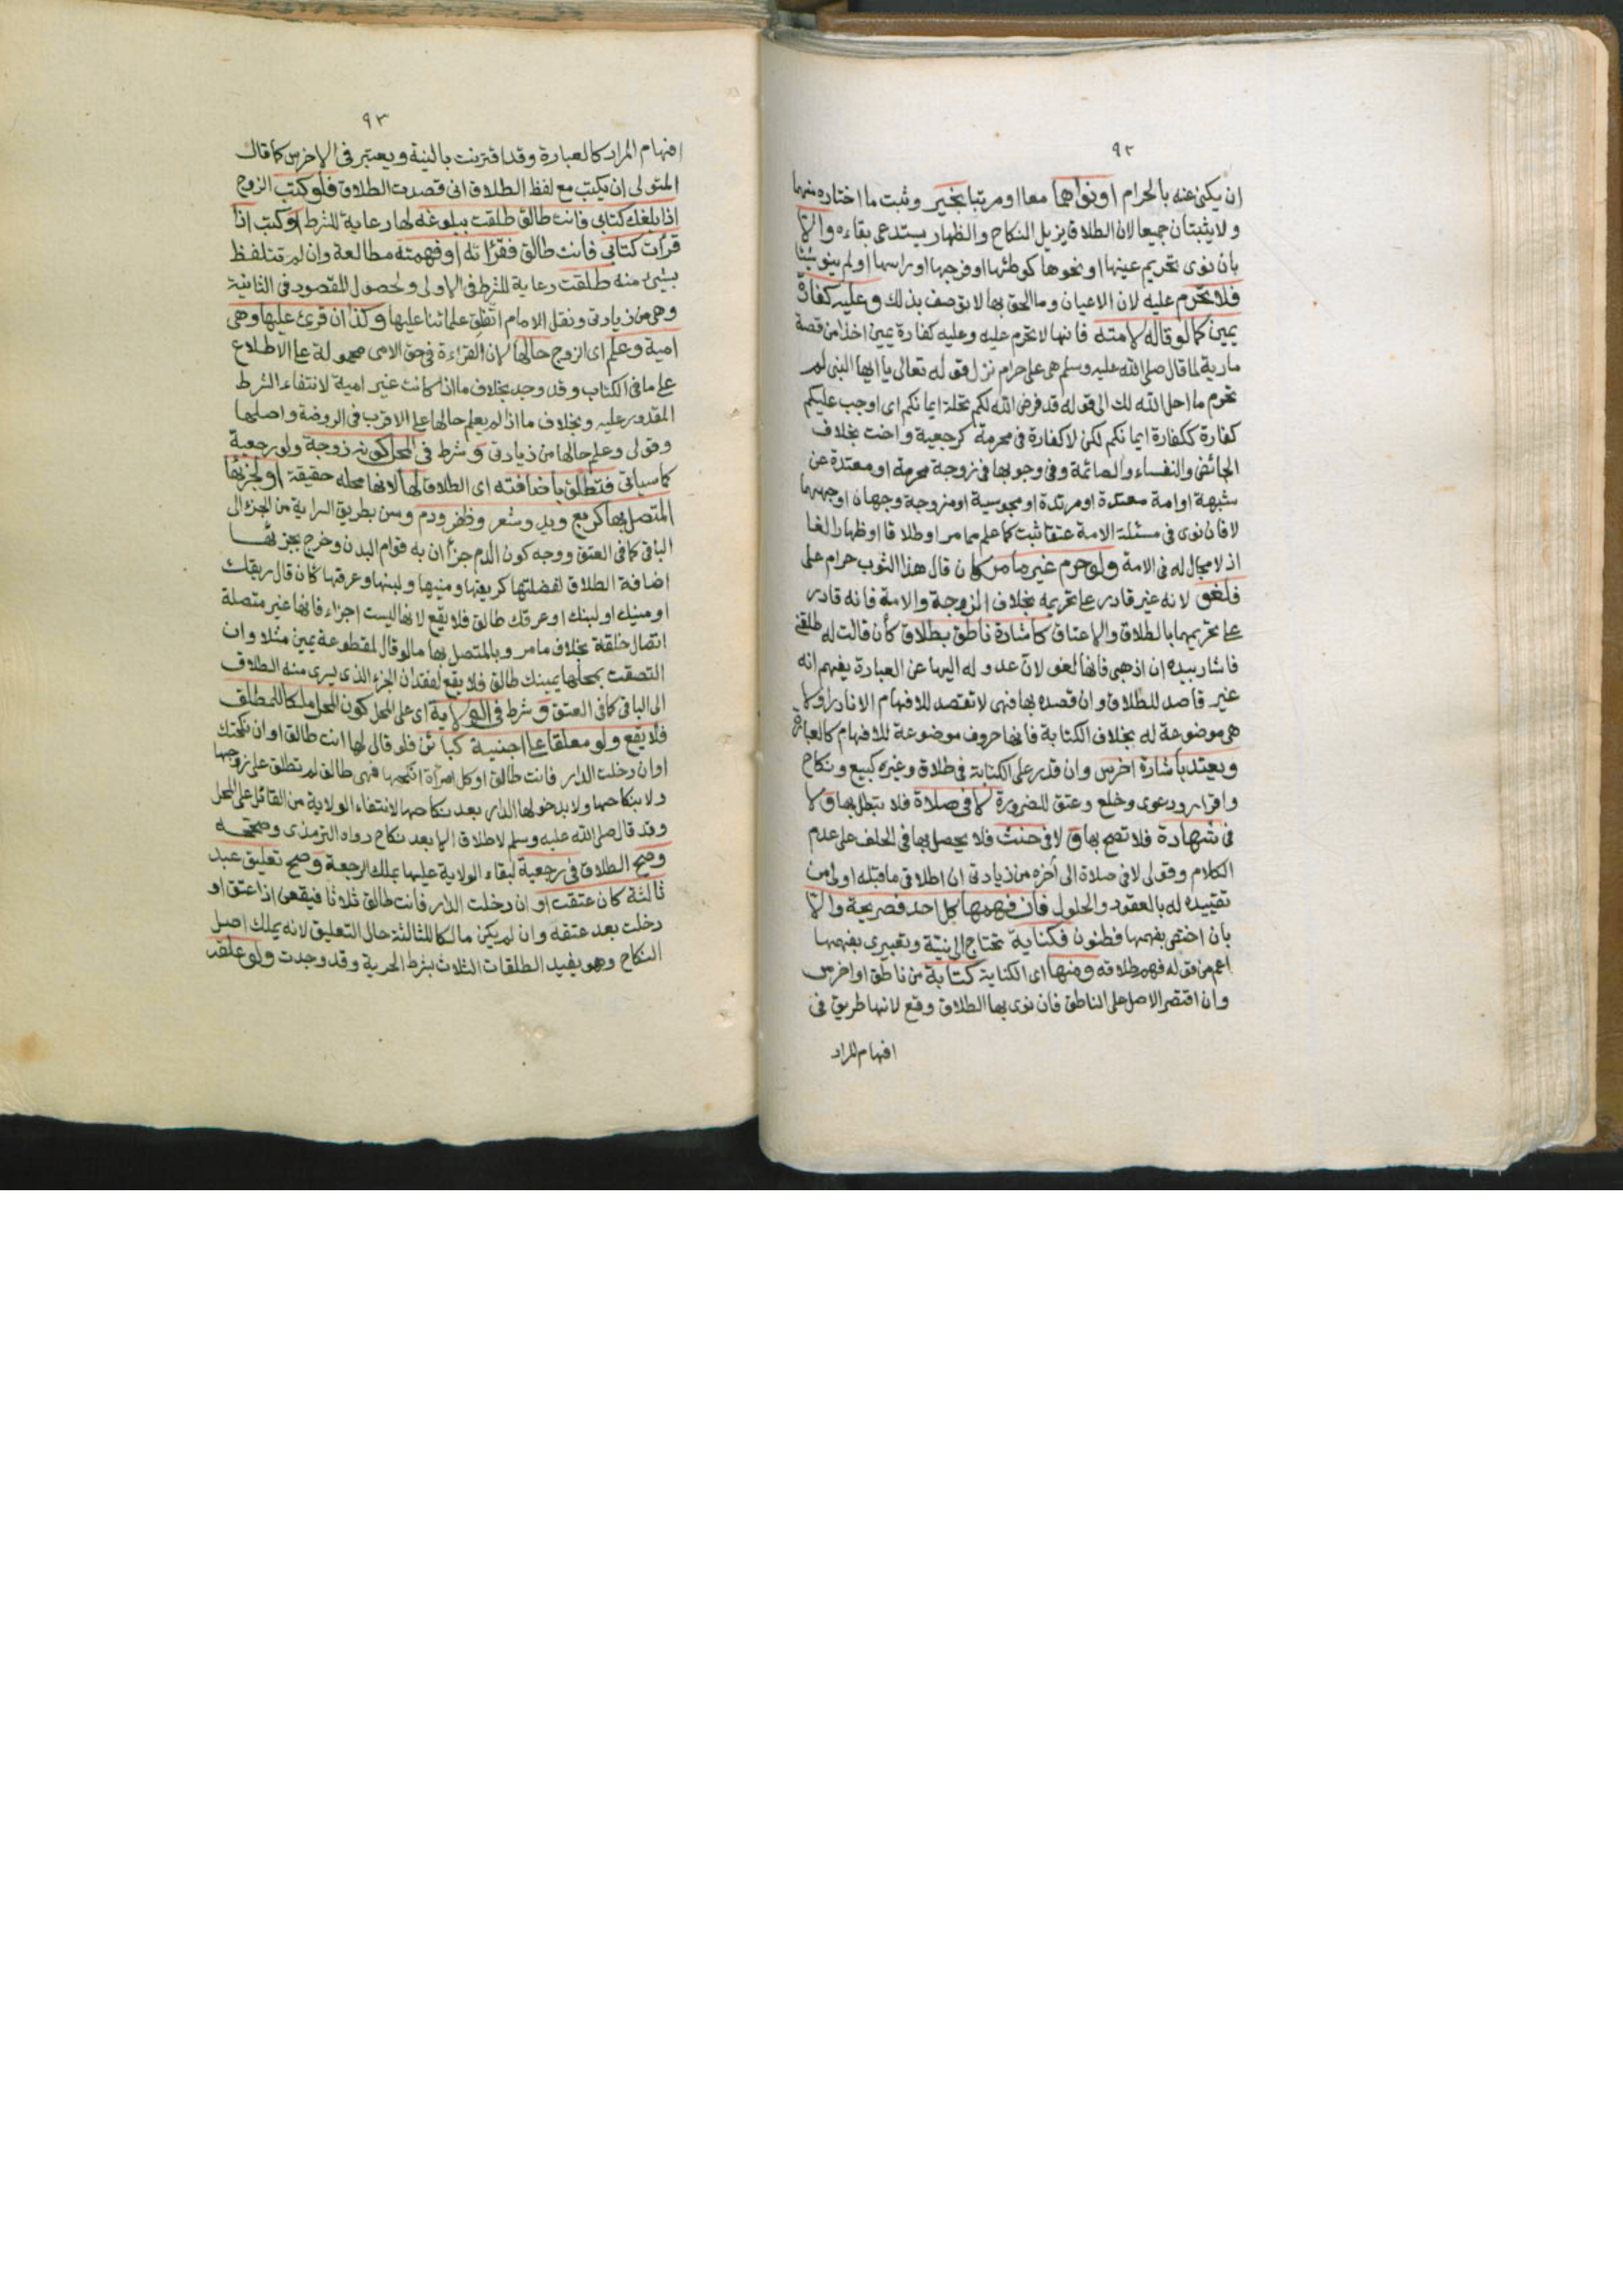 ٩٢
ان يكنى عنه بالحرام او نواهما معا او مرتبا تخير وثبت ما اختاره منهما
ولا يثبتان جميعا لان الطلاق يزيل النكاح والظهار يستدعى بقاءه والا
بان نوى تحريم عينها او نحوها كوطئها او فرجها او راسها او لم ينو شيئا
فلا تحرم عليه لان الاعيان وما الحق بها لا توصف بذلك وعليه كفارة
يمين كما لو قاله لامته فانها لا تحرم عليه وعليه كفارة يمين اخذا من قصة
مارية لما قال صلى الله عليه وسلم هى على حرام نزل قوله تعالى يا ايها النبى لم
تحرم ما احل الله لك الى قوله قد فرض الله لكم تحلة ايمانكم اى اوجب عليكم
كفارة ككفارة ايمانكم لكن لا كفارة فى محرمة كرجعية واخت بخلاف
الحائض والنفساء والصائمة وفى وجوبها فى زوجة محرمة او معتدة عن
شبهة او امة معتدة او مرتدة او مجوسية او مزوجة وجهان اوجههما
لا فان نوى فى مسئلة الامة عتقا ثبت كما علم مما مر او طلاقا او ظهارا لغا
اذ لا مجال له فى الامة ولو حرم غير ما مر كان قال هذا الثوب حرام على
فلغو لانه غير قادر على تحريمه بخلاف الزوجة والامة فانه قادر
على تحريمهما بالطلاق والاعتاق كاشارة ناطق بطلاق كأن قالت له طلقنى
فاشار بيده ان اذهبى فانها لغو لان عدوله اليها عن العبارة يفهم انه
غير قاصد للطلاق وان قصده بها فهى لا تقصد للافهام الا نادرا ولا
هى موضوعة له بخلاف الكتابة فانها حروف موضوعة للافهام كالعبارة
ويعتد باشارة اخرس وان قدر على الكتابة فى طلاق وغيره كبيع ونكاح
واقرار ودعوى وخلع وعتق للضرورة لا فى صلاة فلا تبطل بها ولا
فى شهادة فلا تصح بها ولا فى حنث فلا يحصل بها فى الحلف على عدم
الكلام وقولى لا فى صلاة الى أخره من زيادتى ان اطلاقى ما قبله اولى من
تقييده له بالعقود والحلول فان فهمها كل احد فصريحة والا
بان اختص بفهمها فطنون فكناية تحتاج الى نية وتعبيرى بفهمها
اعم من قوله فهم طلاقه ومنها اى الكناية كتابة من ناطق او اخرس
وان اقتصر الاصل على الناطق فان نوى بها الطلاق وقع لانها طريق فى
افهام المراد
٩٣
افهام المراد كالعبارة وقد اقترنت بالنية ويعتبر فى الاخرس كما قال
المتولى ان يكتب مع لفظ الطلاق انى قصدت الطلاق فلو كتب الزوج
اذا بلغك كتابى فانت طالق طلقت ببلوغه لها رعاية للشرط او كتب اذا
قرأت كتابى فانت طالق فقرأته او فهمته مطالعة وان لم تتلفظ
بشىء منه طلقت رعاية للشرط فى الاولى ولحصول المقصود فى الثانية
وهى من زيادتى ونقل الامام اتفاق علمائنا عليها وكذا ان قرئ عليها وهى
امية وعلم اى الزوج حالها لان القراءة فى حق الامى محمولة على الاطلاع
على ما فى الكتاب وقد وجد بخلاف ما اذا كانت غير امية لانتفاء الشرط
المقدور عليه وبخلاف ما اذا لم يعلم حالها على الاقرب فى الروضة واصلها
وقولى وعلم حالها من زيادتى وشرط فى المحل كونه زوجة ولو رجعية
كما سياتى فتطلق باضافته اى الطلاق لها لانها محله حقيقة او لجزئها
المتصل بها كربع ويد وشعر وظفر ودم وسن بطريق السراية من الجزء الى
الباقى كما فى العتق ووجه كون الدم جزأ ان به قوام البدن وخرج بجزئها
اضافة الطلاق لفضلتها كريقها ومنيها ولبنها وعرقها كان قال ريقك
او منيك او لبنك او عرقك طالق فلا يقع لانها ليست اجزاء فانها غير متصلة
اتصال خلقة بخلاف ما مر وبالمتصل بها ما لو قال لمقطوعة يمين مثلا وان
التصقت بمحلها يمينك طالق فلا يقع لفقدان الجزء الذى يسرى منه الطلاق
الى الباقى كما فى العتق وشرط فى الولاية اى على المحل كون المحل ملكا للمطلق
فلا يقع ولو معلقا على اجنبية كبائن فلو قال لها انت طالق او ان نكحتك
او ان دخلت الدار فانت طالق او كل امرأة انكحها فهى طالق لم تطلق على زوجها
ولا بنكاحها ولا بدخولها الدار بعد نكاحها لانتفاء الولاية من القائل على المحل
وقد قال صلى الله عليه وسلم لا طلاق الا بعد نكاح رواه الترمذى وصححه
وصح الطلاق فى رجعية لبقاء الولاية عليها بملك الرجعة وصح تعليق عبد
ثالثة كان عتقت او ان دخلت الدار فانت طالق ثلاثا فيقعن اذا عتق او
دخلت بعد عتقه وان لم يكن مالكا للثالثة حال التعليق لانه يملك اصل
النكاح وهو يفيد الطلقات الثلاث بشرط الحرية وقد وجدت ولو علقه